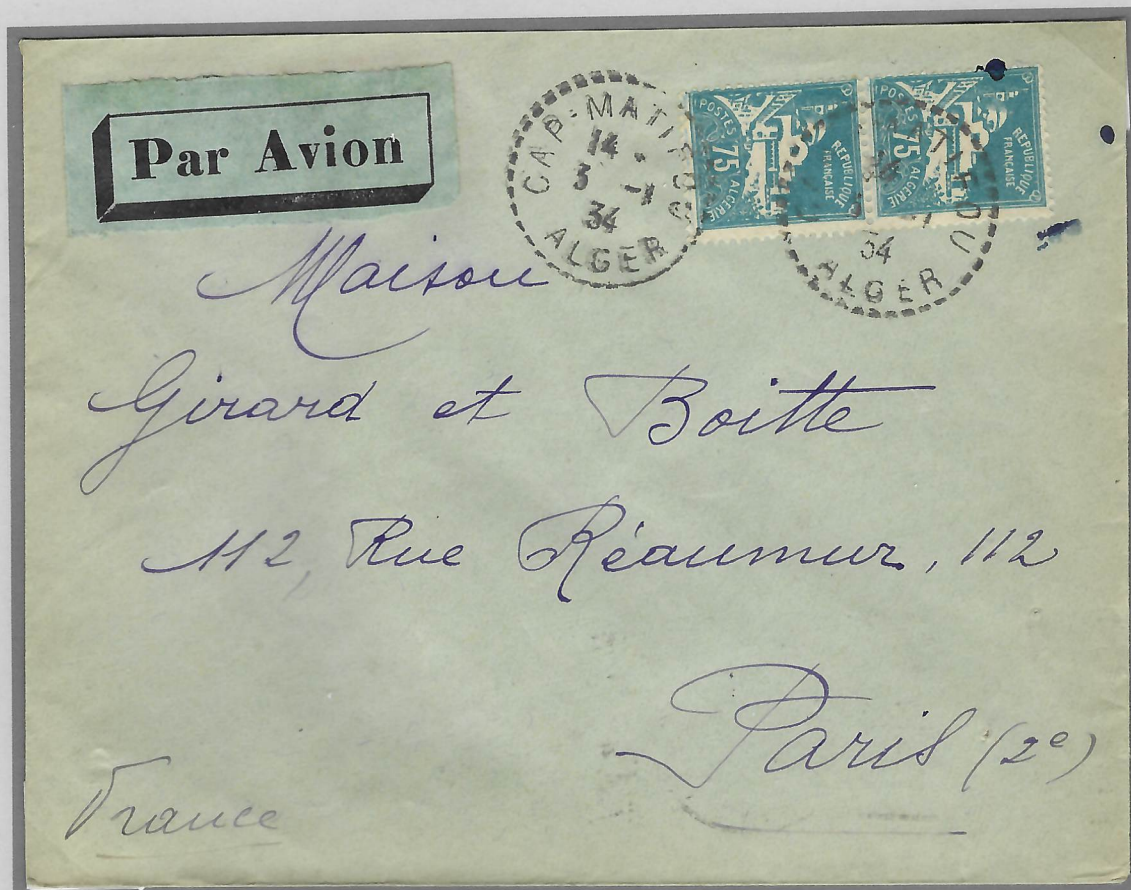 Par Avion
CAP-MATIFOU
14
3 -1
34
ALGER
POSTES ALGERIE
75
REPUBLIQUE
FRANCAISE
POSTES ALGERIE
75
REPUBLIQUE
FRANCAISE
MATIFOU
34
ALGER
Maison
Girard et Boitte
112, Rue Réaumur, 112
Paris (2e)
France